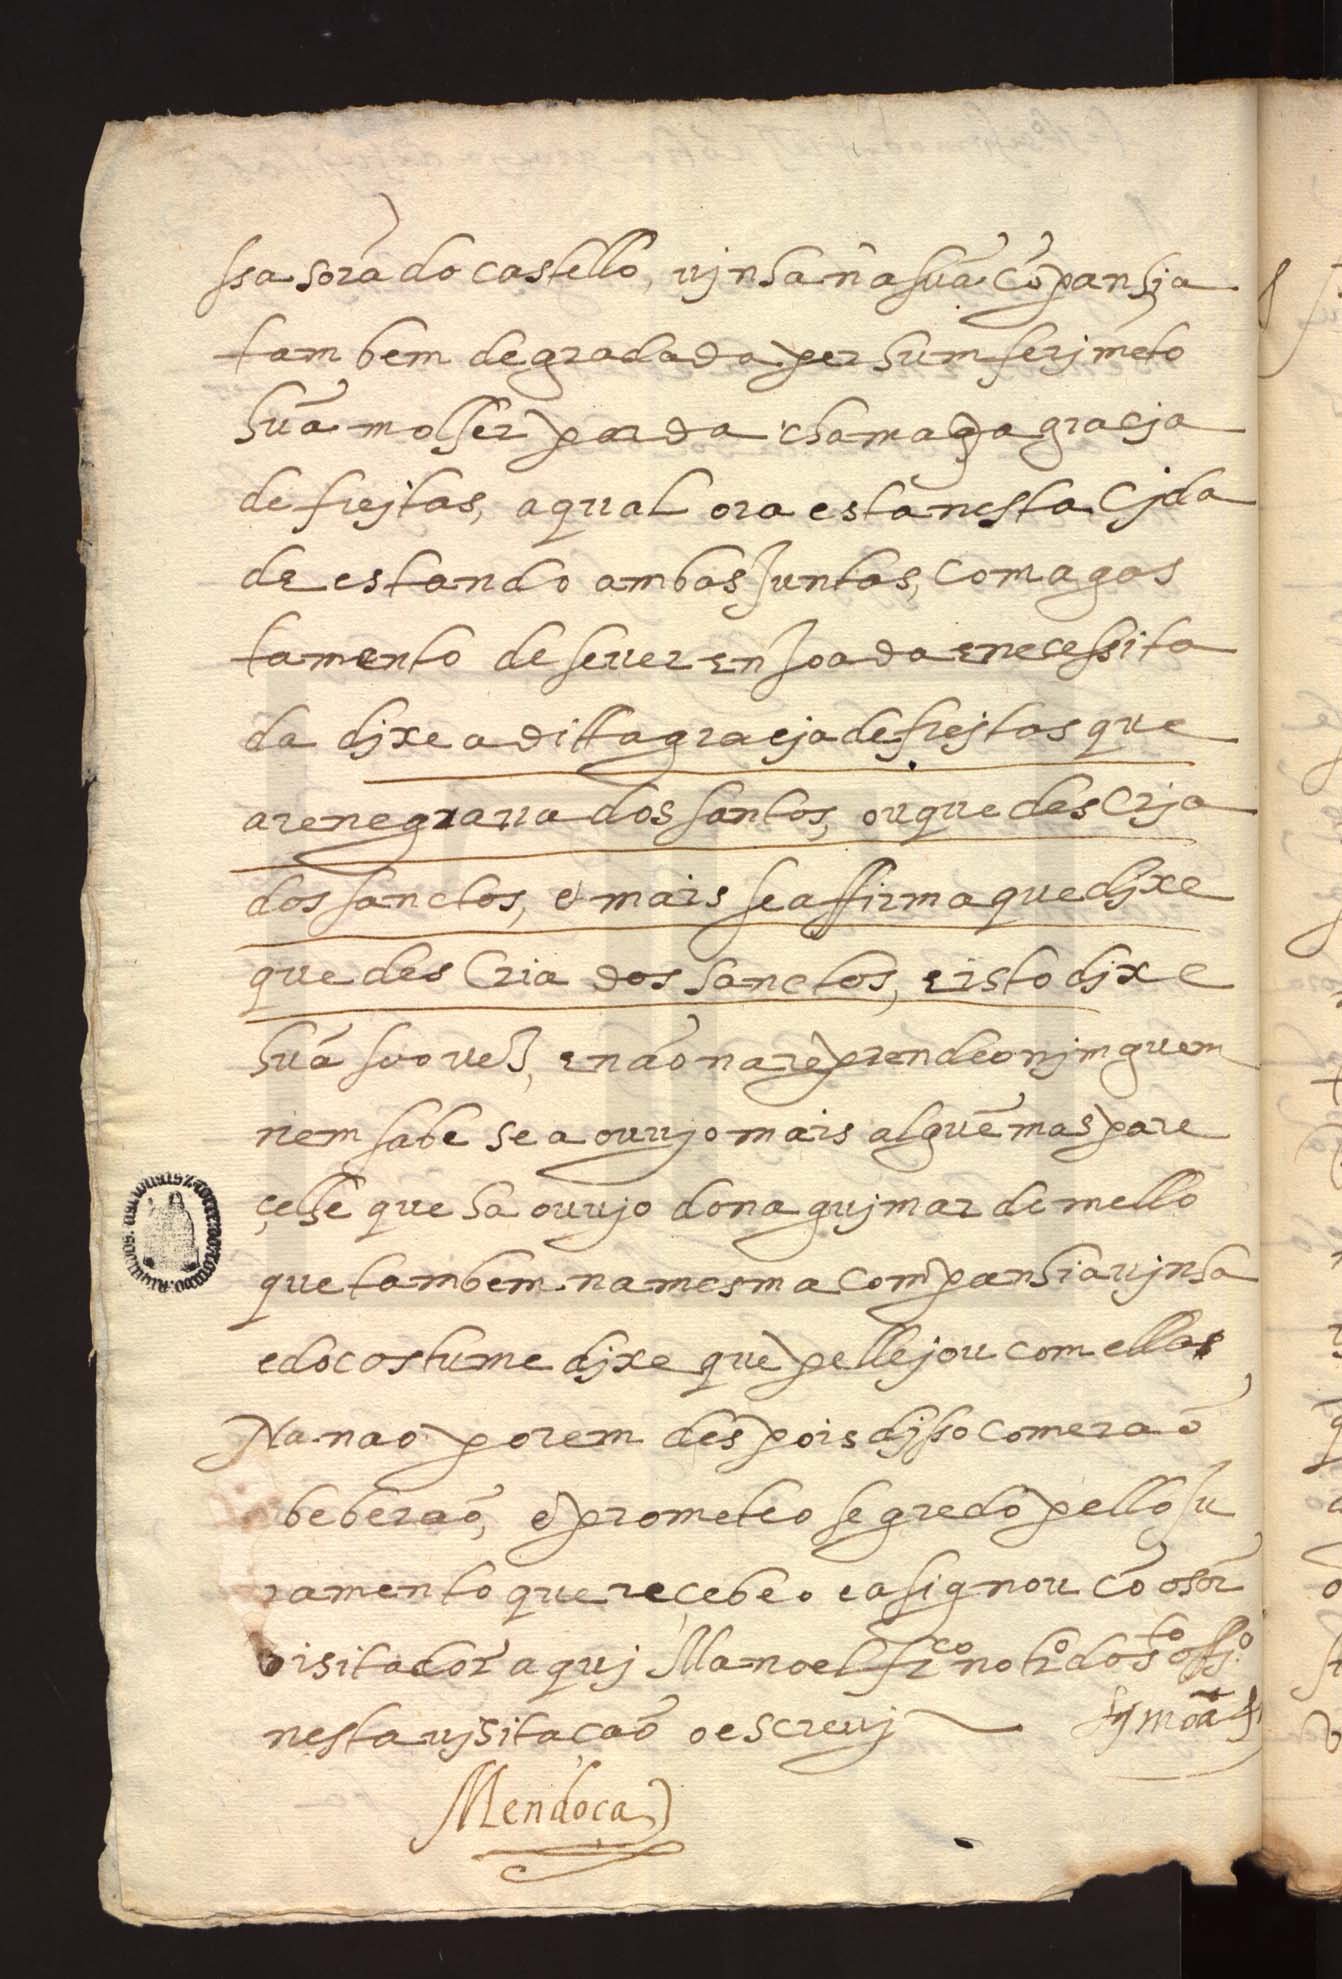 ssa sorã do castello, vjnha na sua cõpanhja
tambem degradada per hum ferjmẽto
hũa molher parda chamada gracja
de frejtas, a qual ora está nesta Cjda
de estando ambas Juntas, com agas
tamento de se ver enJoada e necessita
da djxe a ditta gracja de frejtas que
arenegraua dos santos, ou que des Crja
dos sanctos, e mais se affirma que djxe
que des Cria dos sanctos, e isto djxe
hũa soo ues, e não na reprendeo njmguem
nem sabe se a ouujo mais alguẽ mas pare
çelhe que ha ouujo dona gujmar de mello
que tambem na mesma companhia vjnha
e do costume djxe que pellejou com ellas
Na nao porem despois djsso comeraõ
beberaõ, e prometeo segredo pello Ju
ramento que reçebeo e asignou cõ o sõr
visitador aquj Manoel frco notrº do sto offjº
nesta vjsitaçaõ o escreuj
Mendoça